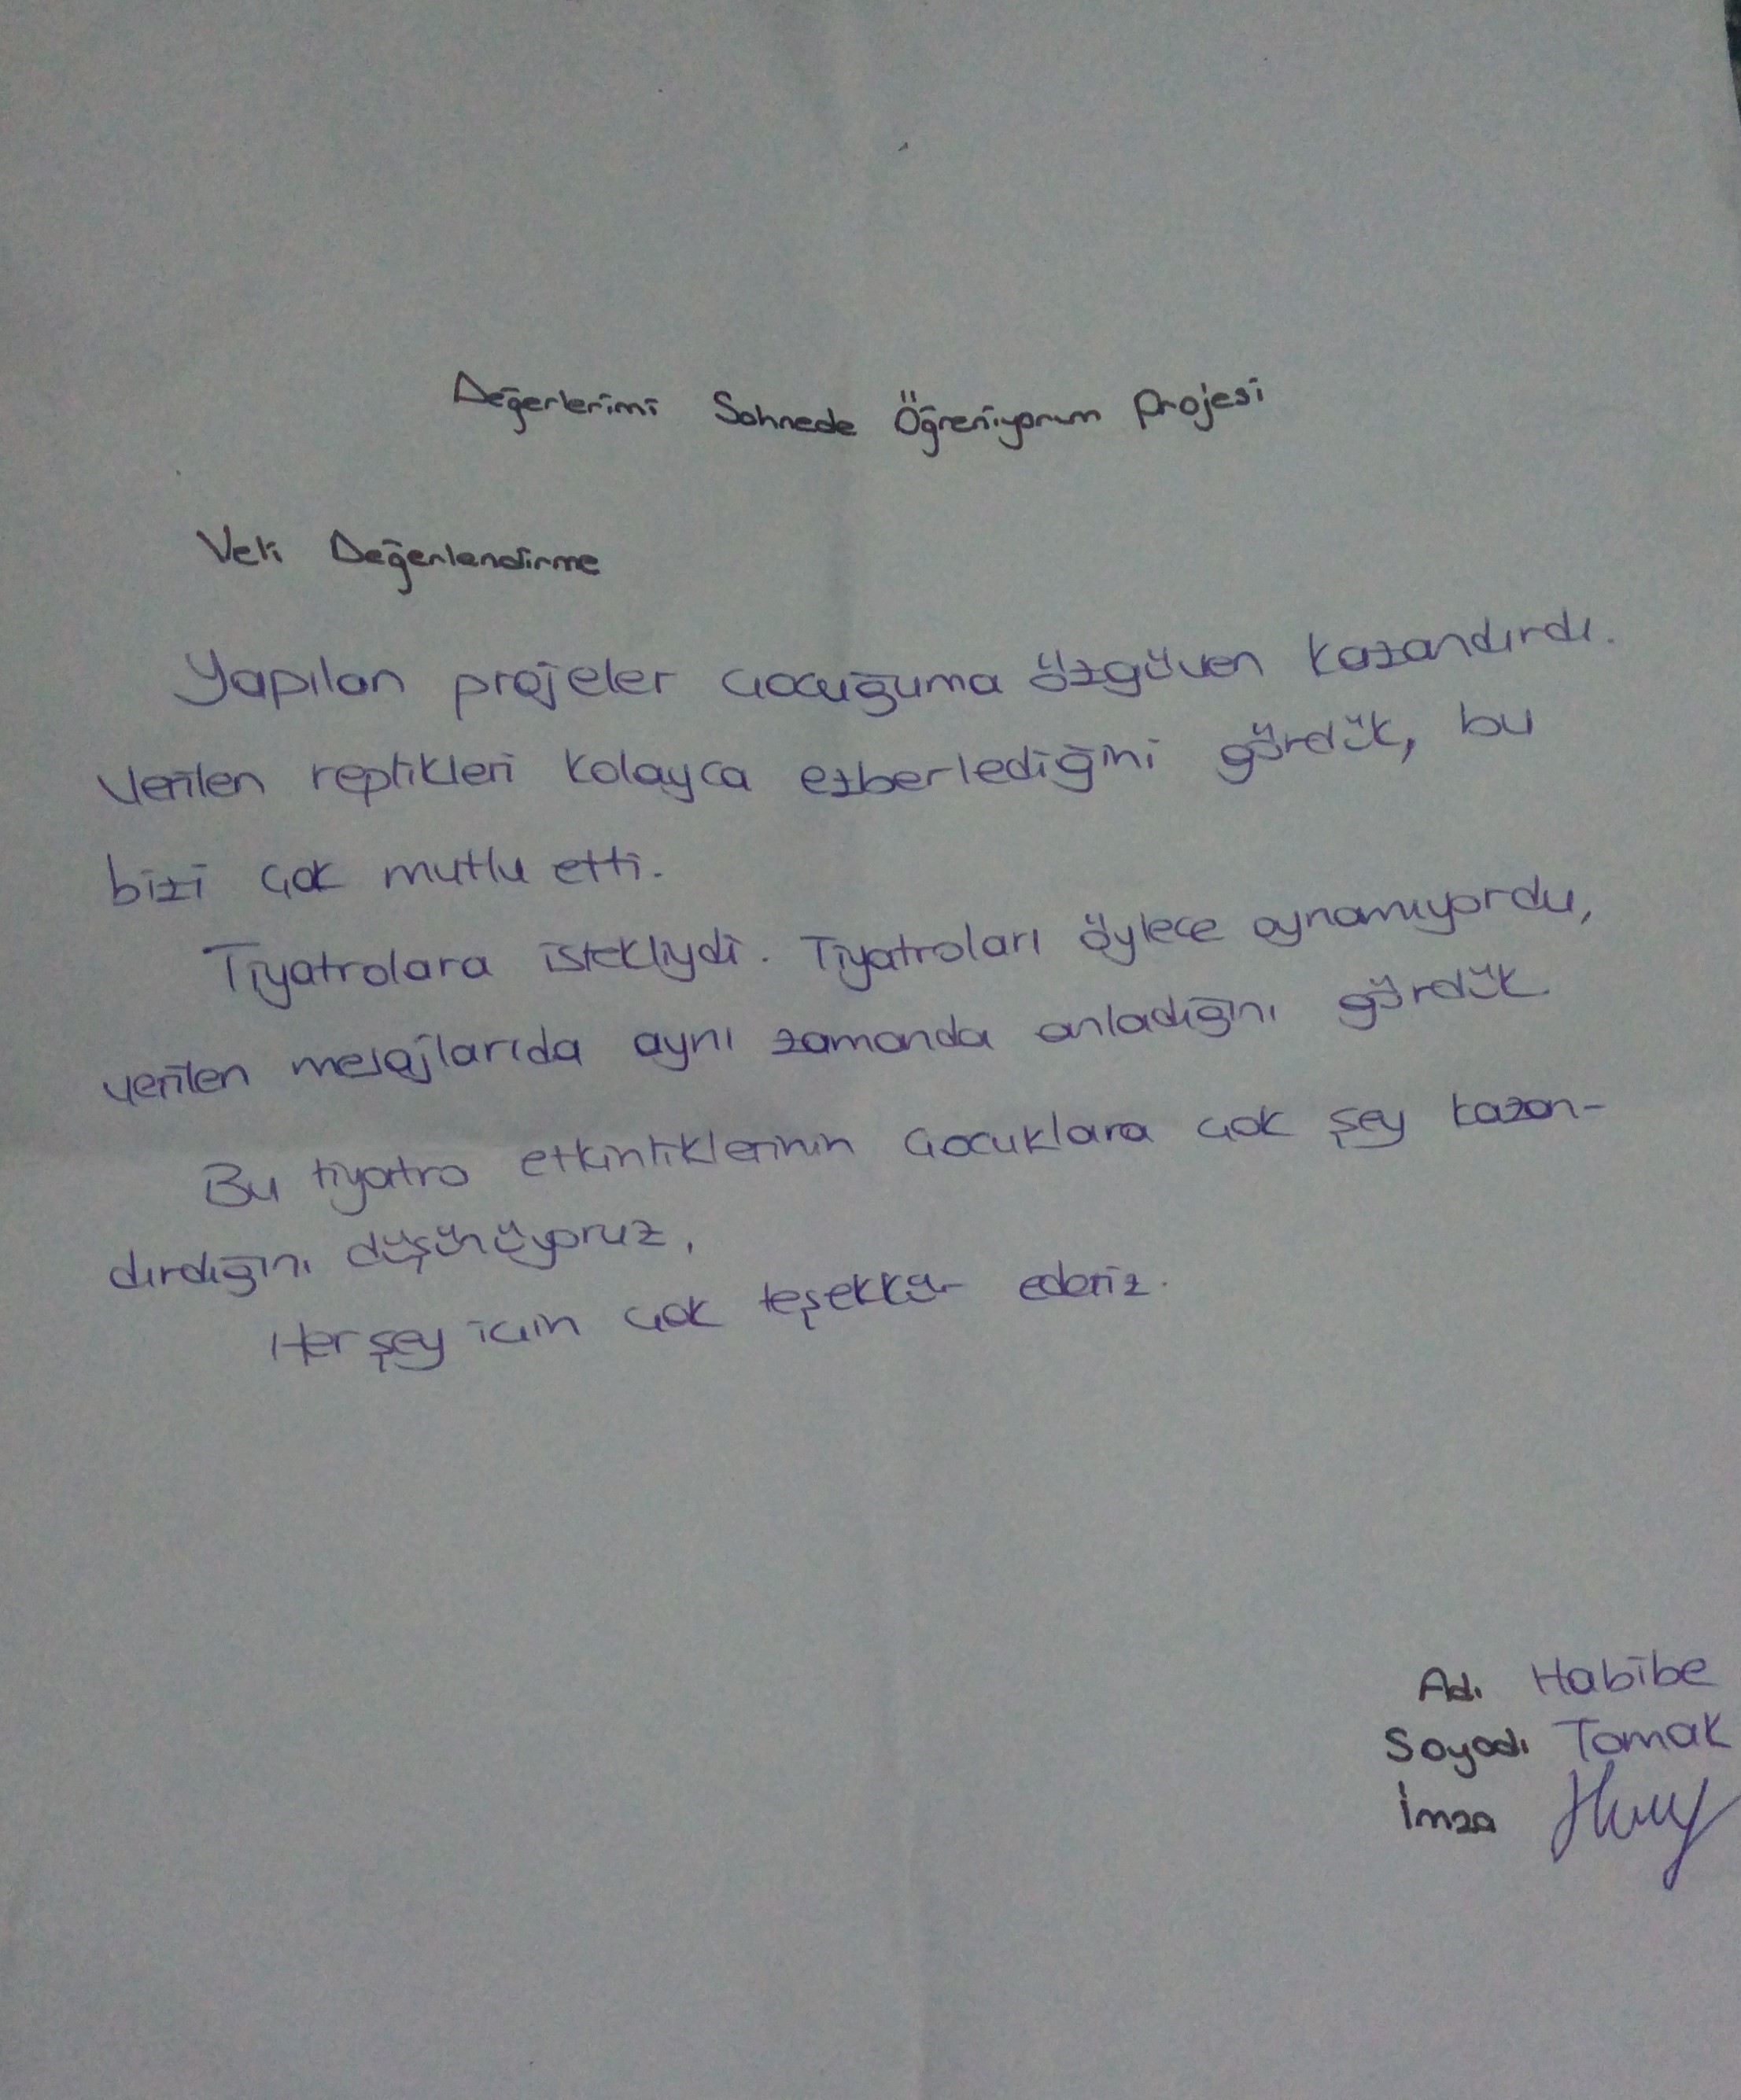 Değerlerimi Sahnede Öğreniyorum Projesi
Veli Değerlendirme
Yapılan projeler çocuğuma özgüven kazandırdı.
Verilen replikleri kolayca ezberlediğini gördük, bu
bizi çok mutlu etti.
Tiyatrolara istekliydi. Tiyatroları öylece oynamıyordu,
verilen mesajlarıda aynı zamanda anladığını gördük.
Bu tiyatro etkinliklerinin çocuklara çok şey kazan-
dırdığını düşünüyoruz.
Herşey için çok teşekkür ederiz.
Adı Habibe
Soyadı Tamak
İmza